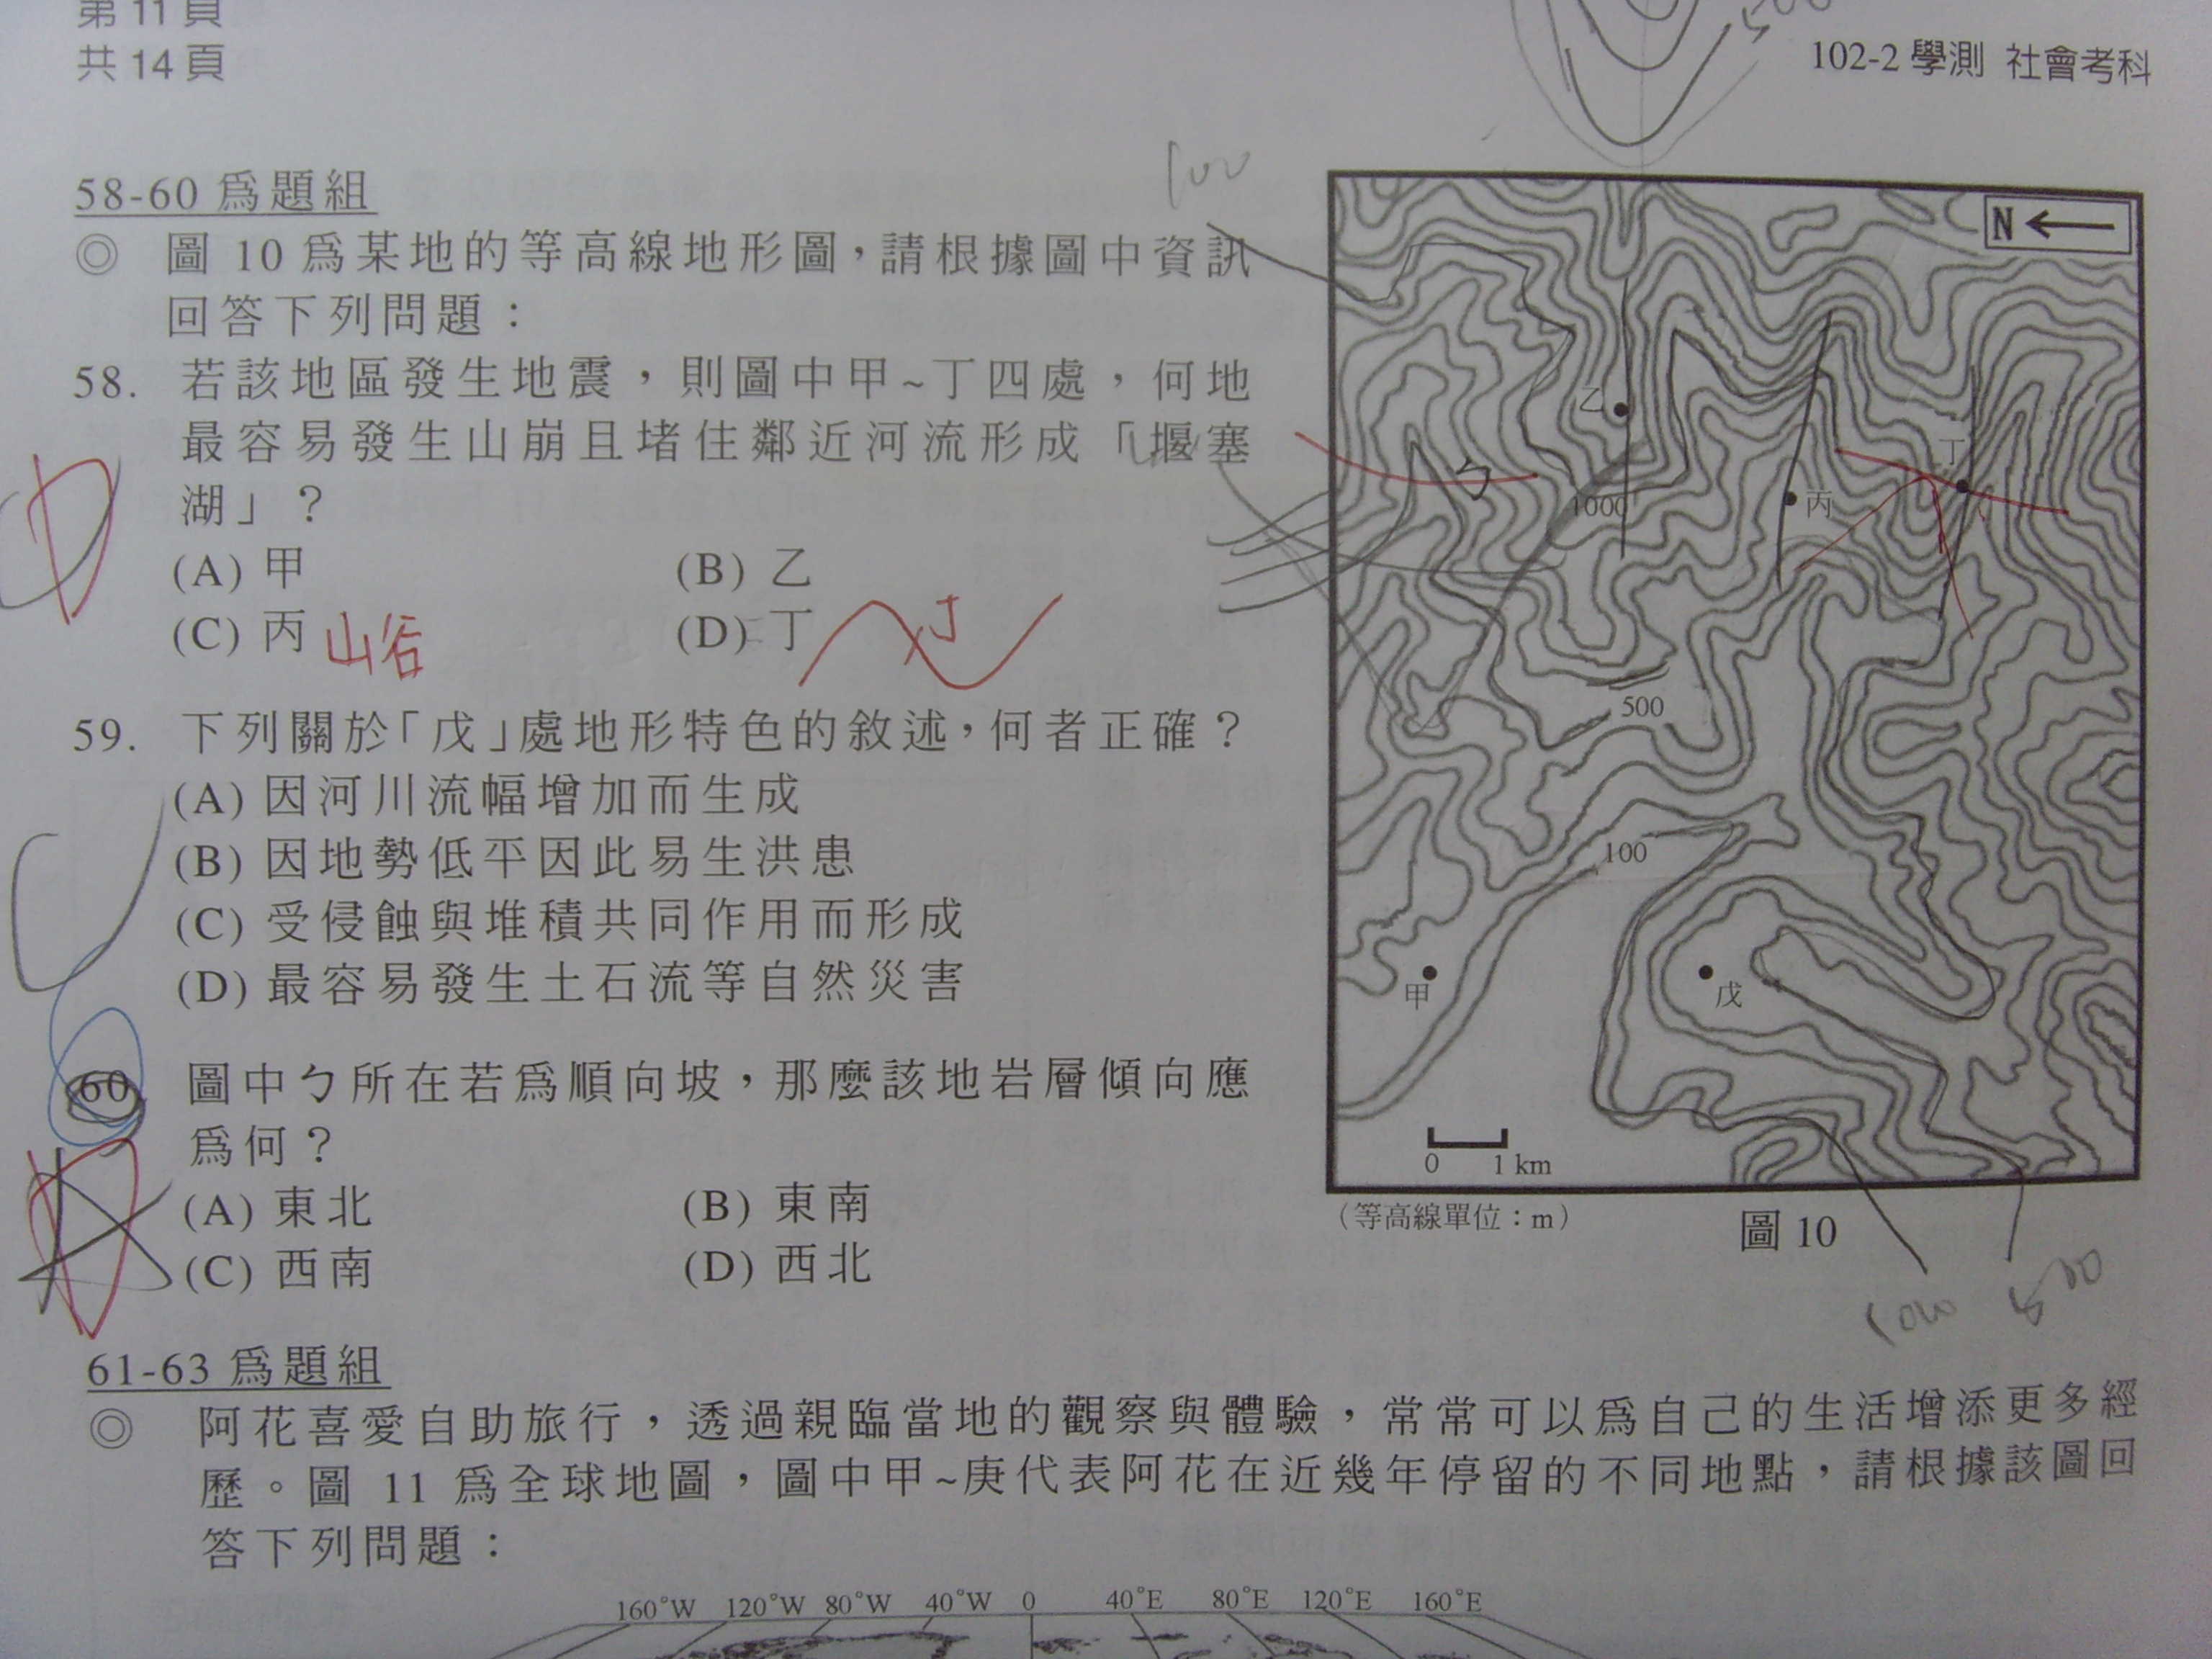 第 11 頁
共 14 頁
102-2 學測 社會考科
58-60 爲題組
◎ 圖 10 爲某地的等高線地形圖，請根據圖中資訊
回答下列問題：
58. 若該地區發生地震，則圖中甲~丁四處，何地
最容易發生山崩且堵住鄰近河流形成「堰塞
湖」？
(A) 甲 (B) 乙
(C) 丙 (D) 丁
山谷
59. 下列關於「戊」處地形特色的敘述，何者正確？
(A) 因河川流幅增加而生成
(B) 因地勢低平因此易生洪患
(C) 受侵蝕與堆積共同作用而形成
(D) 最容易發生土石流等自然災害
60. 圖中ㄅ所在若爲順向坡，那麼該地岩層傾向應
爲何？
(A) 東北 (B) 東南
(C) 西南 (D) 西北
100
N
乙
丁
ㄅ
1000
丙
500
100
甲
戊
0 1 km
（等高線單位：m）
圖 10
500
61-63 爲題組
◎ 阿花喜愛自助旅行，透過親臨當地的觀察與體驗，常常可以爲自己的生活增添更多經
歷。圖 11 爲全球地圖，圖中甲~庚代表阿花在近幾年停留的不同地點，請根據該圖回
答下列問題：
160°W 120°W 80°W 40°W 0 40°E 80°E 120°E 160°E